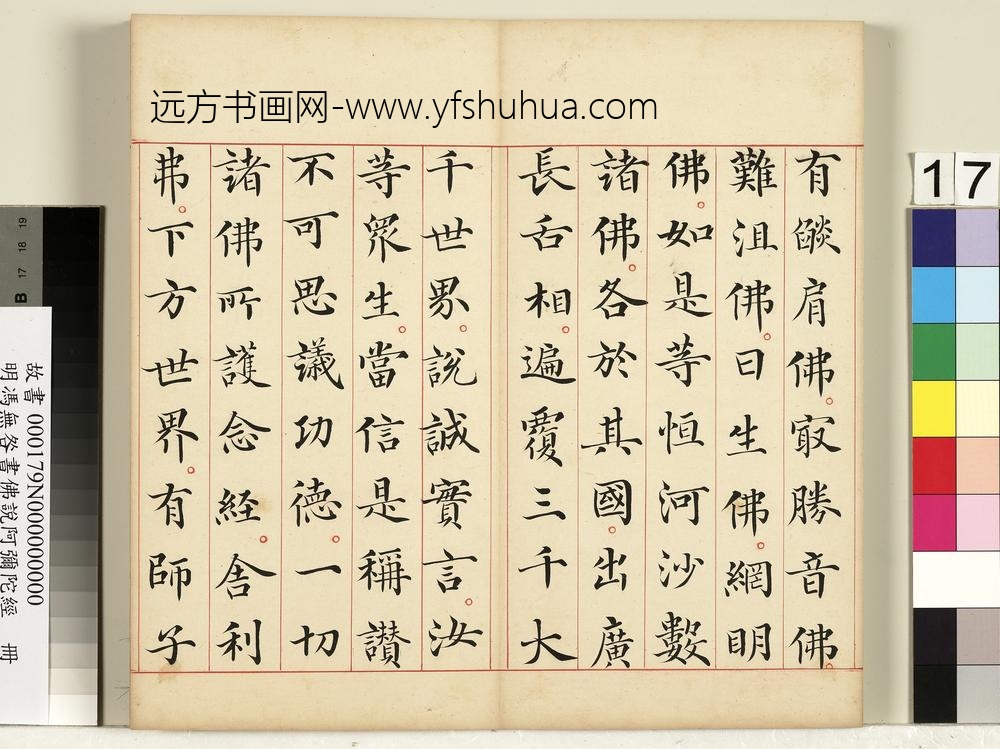 远方书画网-www.yfshuhua.com
有燄肩佛。㝡勝音佛。
難沮佛。日生佛。網明
佛。如是等恒河沙數
諸佛。各於其國。出廣
長舌相。遍覆三千大
千世界。說誠實言。汝
等眾生。當信是稱讚
不可思議功德。一切
諸佛所護念経。舍利
弗。下方世界。有師子
17
19
18
17
B
故書 000179N000000000
明馮無咎書佛說阿彌陀經 冊